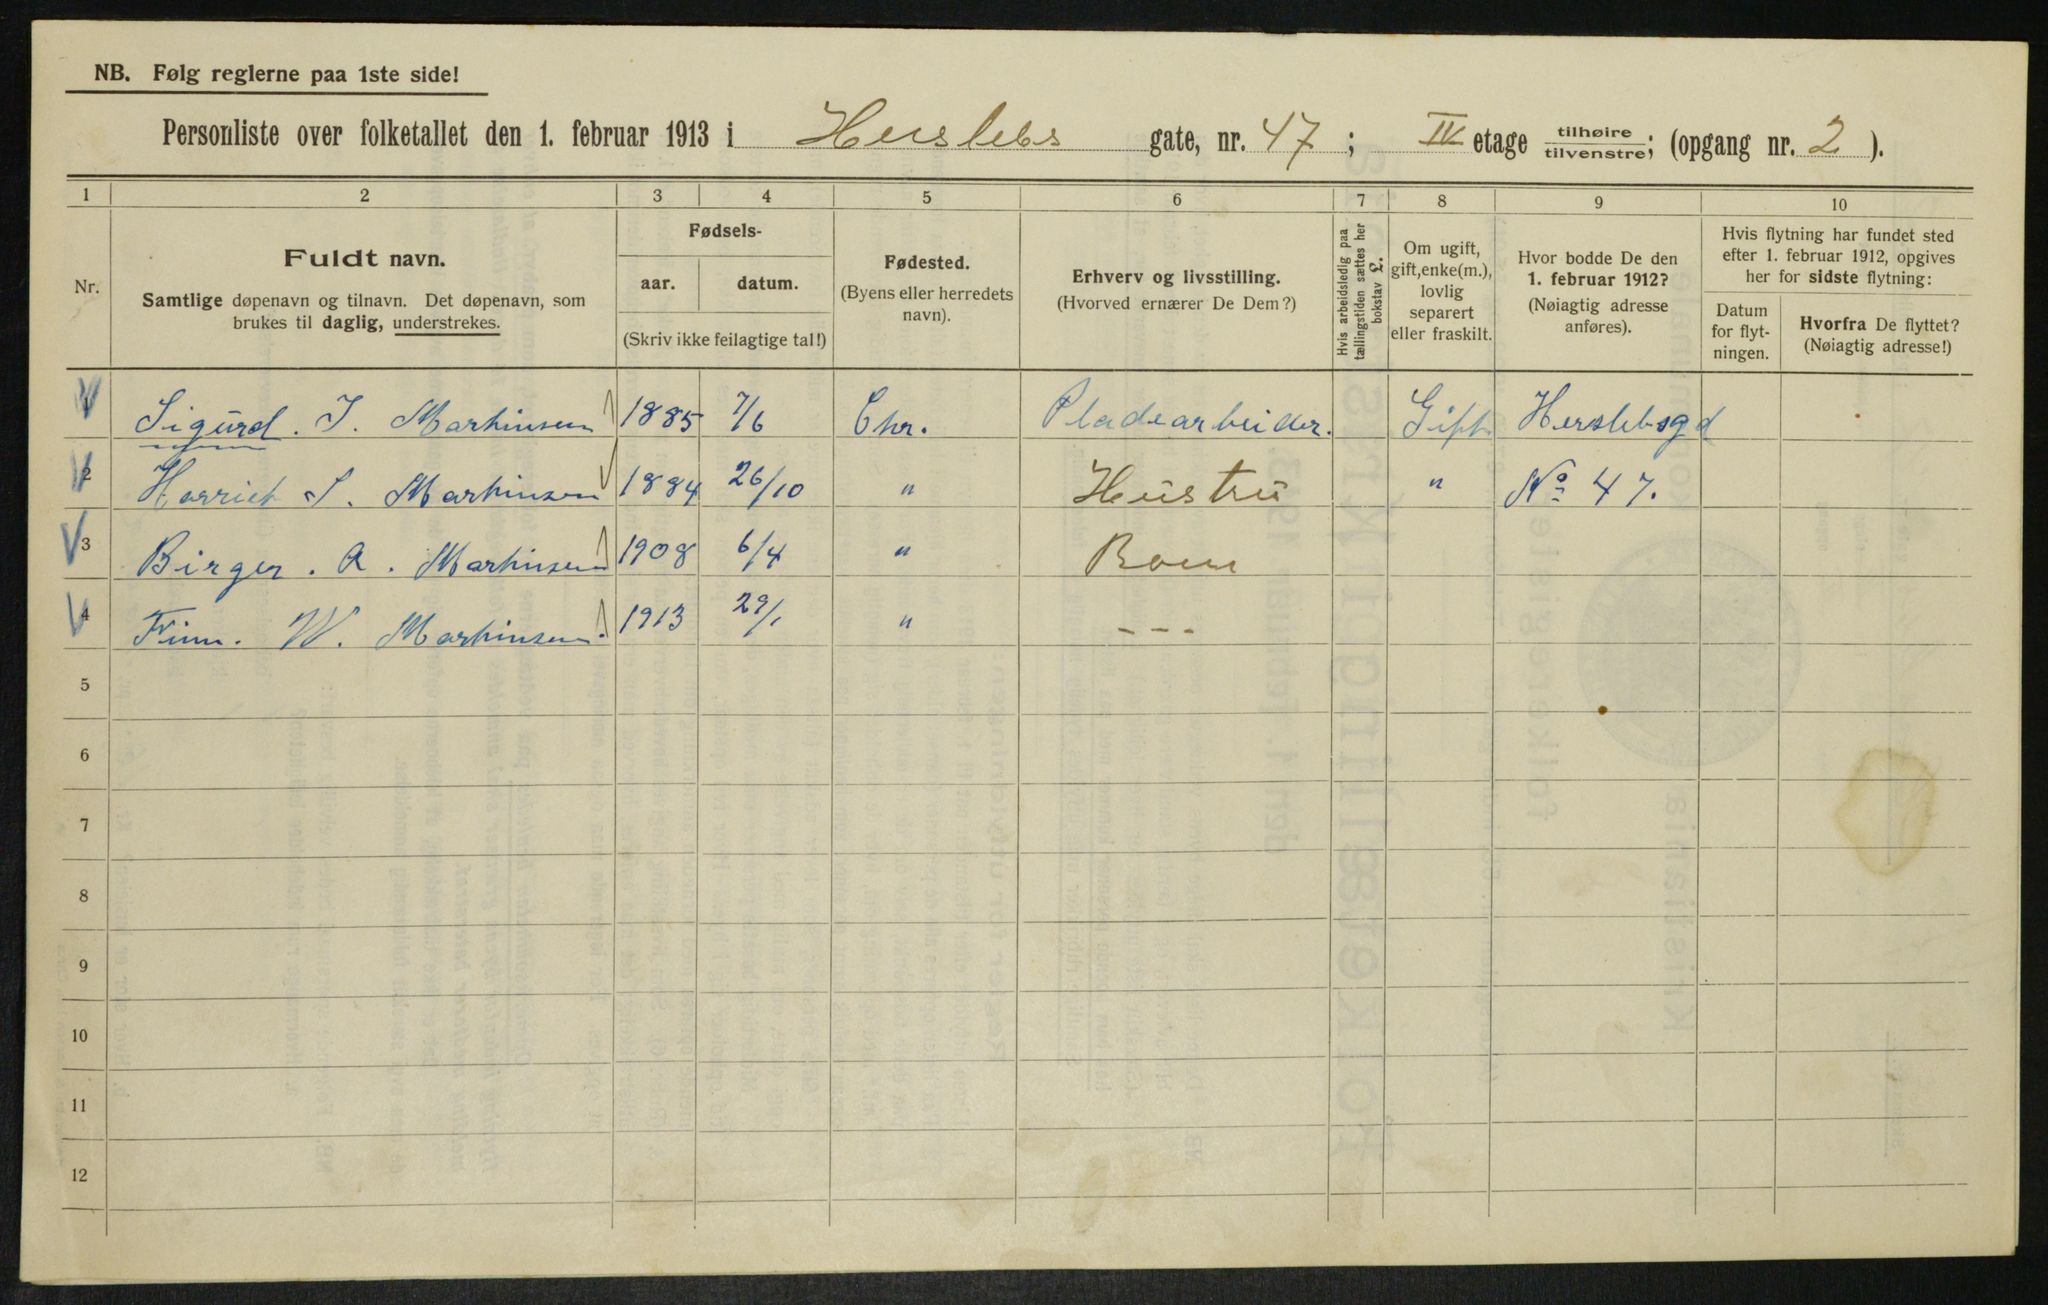 NB. Følg reglerne paa 1ste side!
Personliste over folketallet den 1. februar 1913 i Herslebs gate, nr. 47 ; IV etage tilhøire / tilvenstre; (opgang nr. 2 ).
1 2 3 4 5 6 7 8 9 10
Nr.
Fuldt navn.
Samtlige døpenavn og tilnavn. Det døpenavn, som
brukes til daglig, understrekes.
Fødsels-
aar. datum.
(Skriv ikke feilagtige tal!)
Fødested.
(Byens eller herredets
navn).
Erhverv og livsstilling.
(Hvorved ernærer De Dem?)
Hvis arbeidsledig paa
tællingstiden sættes her
bokstav L.
Om ugift,
gift, enke(m.),
lovlig
separert
eller fraskilt.
Hvor bodde De den
1. februar 1912?
(Nøiagtig adresse
anføres).
Hvis flytning har fundet sted
efter 1. februar 1912, opgives
her for sidste flytning:
Datum
for flyt-
ningen.
Hvorfra De flyttet?
(Nøiagtig adresse!)
1 Sigurd. J. Marthinsen 1885 7/6 Chr. Pladearbeider. Gift Herslebsgd
2 Harriet S. Marthinsen 1884 26/10 " Hustru " No 47.
3 Birger. A. Marthinsen 1908 6/4 " Barn
4 Finn. W. Marthinsen. 1913 29/1 " - - -
5
6
7
8
9
10
11
12